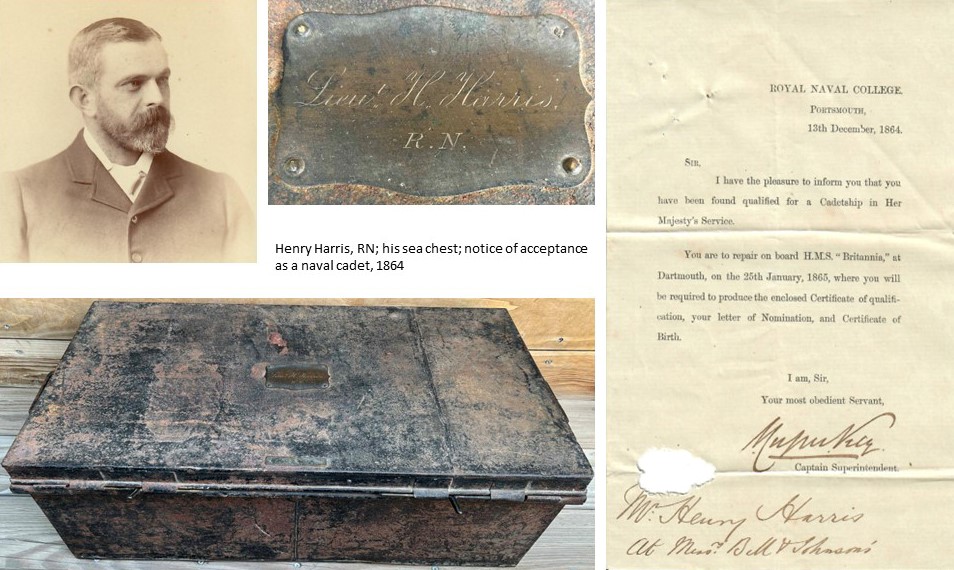 Lieut. H. Harris,
R.N.
Henry Harris, RN; his sea chest; notice of acceptance
as a naval cadet, 1864
ROYAL NAVAL COLLEGE,
PORTSMOUTH,
13th December, 1864.
SIR,
I have the pleasure to inform you that you
have been found qualified for a Cadetship in Her
Majesty's Service.
You are to repair on board H.M.S. "Britannia," at
Dartmouth, on the 25th January, 1865, where you will
be required to produce the enclosed Certificate of qualifi-
cation, your letter of Nomination, and Certificate of
Birth.
I am, Sir,
Your most obedient Servant,
Captain Superintendent.
Mr. Henry Harris
At Messrs Bell & Johnson's